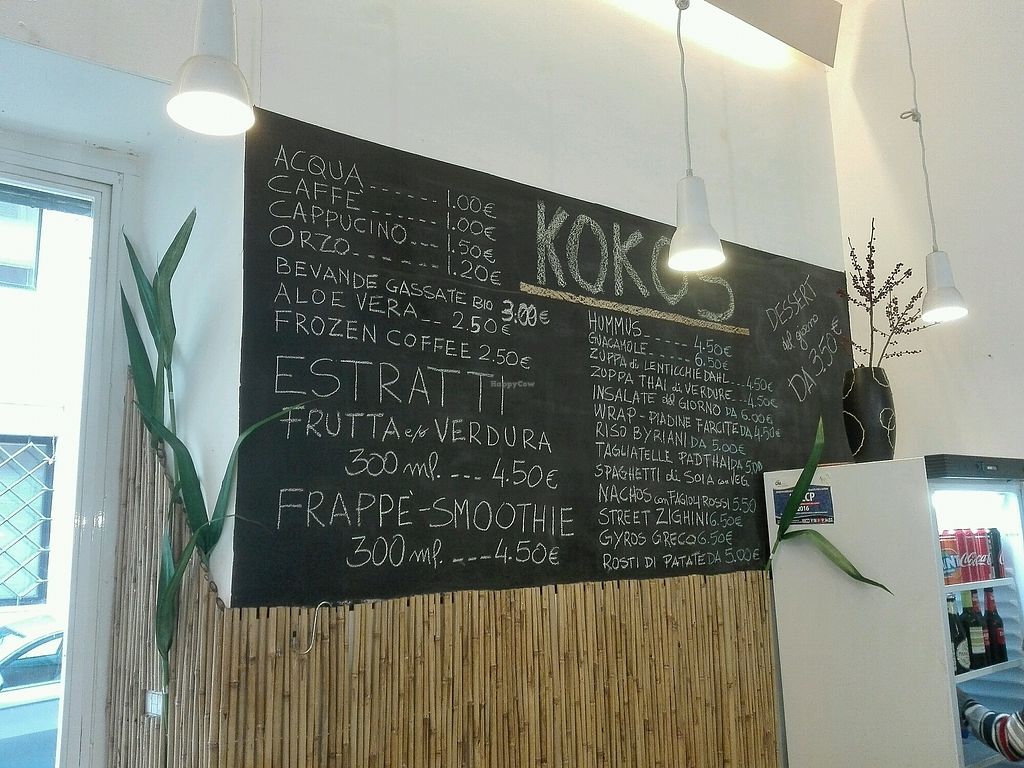 ACQUA ------- 1.00€
CAFFÈ ------- 1.00€
CAPPUCINO--- 1.50€
ORZO--------- 1.20€
BEVANDE GASSATE BIO 3.00€
ALOE VERA -- 2.50€
FROZEN COFFEE 2.50€
ESTRATTI
FRUTTA e/o VERDURA
300 ml. --- 4.50€
FRAPPÈ-SMOOTHIE
300 ml. --- 4.50€
KOKOS
HUMMUS ------ 4.50€
GUACAMOLE ------ 6.50€
ZUPPA di LENTICCHIE DAHL --- 4.50€
ZUPPA THAI di VERDURE -- 4.50€
INSALATE del GIORNO DA 6.00€
WRAP-PIADINE FARCITE DA 4.50€
RISO BYRIANI DA 5.00€
TAGLIATELLE PADTHAI DA 5.00
SPAGHETTI di SOIA con VEG.
NACHOS con FAGIOLI ROSSI 5.50
STREET ZIGHINI 6.50€
GYROS GRECO 6.50€
ROSTI DI PATATE DA 5.00€
DESSERT
del giorno
DA 3,50€
HappyCow
2016
Coca-Cola